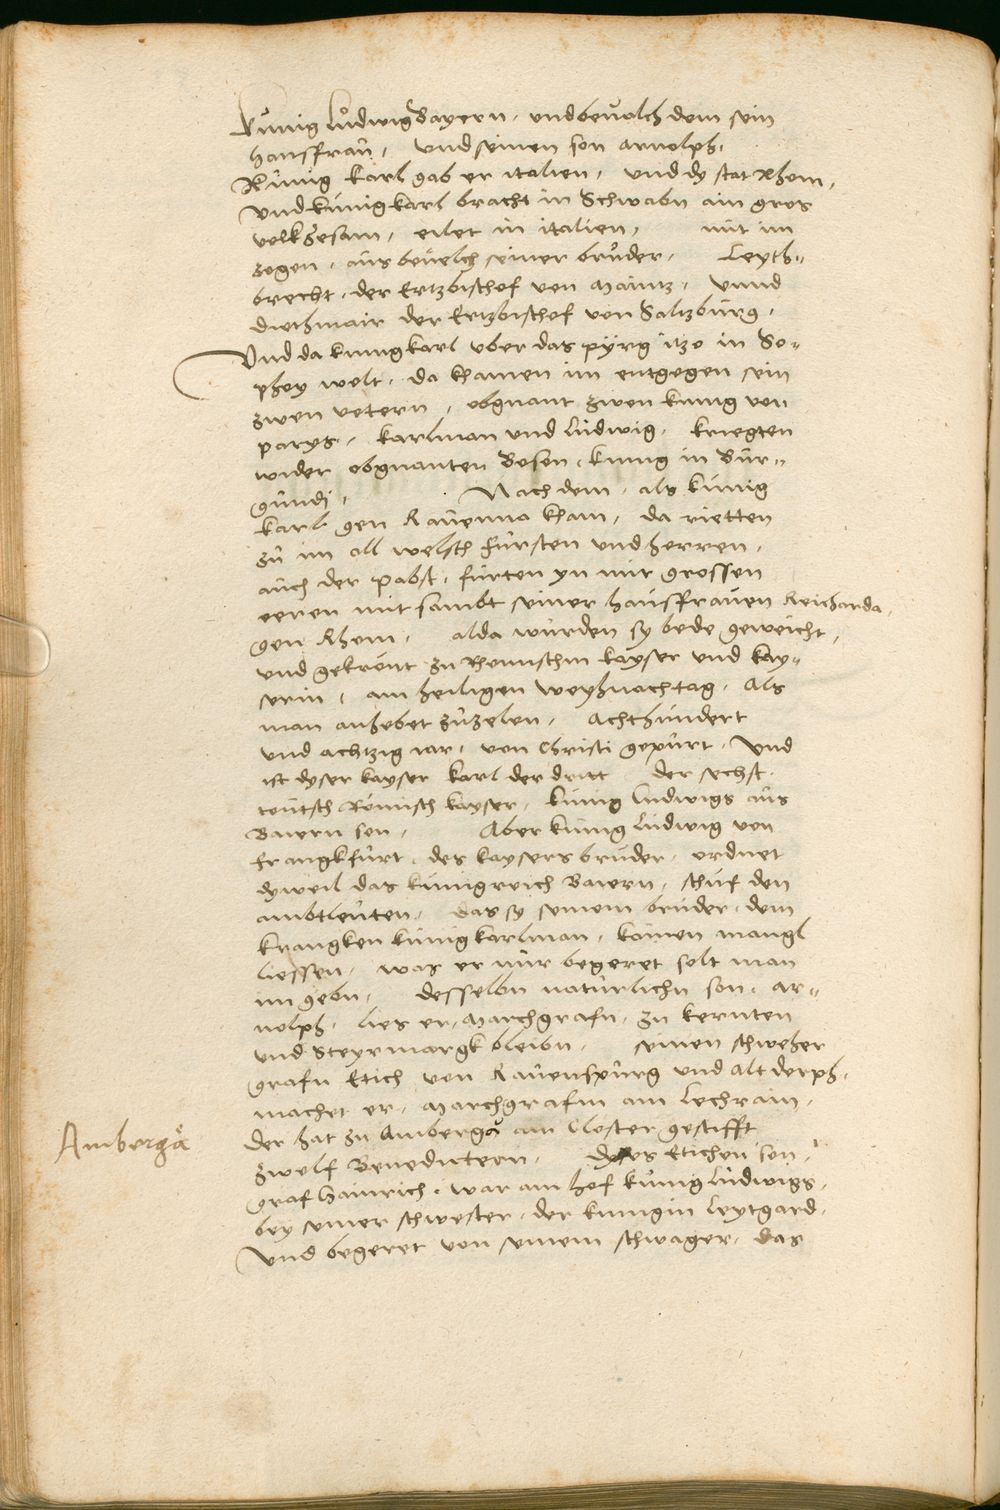 Kunig Ludwig Bayern, und bevalch dem sein
hausfrau, und seinen son Arnolph.
Kunig Karl gab er italien, und dy stat Rhom,
und kunig Karl bracht in Schwabn ain gros
volk zesam, eilet in italien, mit im
zogen, aus bevelch seiner bruder, Leyth=
brecht, der Ertzbischof von Maintz, unnd
Diethmair der Ertzbischof von Saltzburg,
Und da kunig Karl uber das pyrg itzo in So=
phoy wolt, da khamen im entgegen sein
zwen vetern, obgnant zwen kunig von
parys, Karlman und Ludwig, kriegten
wider obgnanten Boson, kunig in Bur=
gundj, Nach dem, als kunig
Karl gen Ravenna kham, da rietten
zu im all welsch fursten und herren,
auch der Pabst, furten yn mit grossen
eeren mit sambt seiner hausfrauen Reicharda,
gen Rhom, alda wurden sy bede geweicht,
und gekrönt zu Rhomischm kayser und kay=
serin, am heiligen weyhnachtag, Als
man anhebet zuzelen, Achthundert
und achtzig iar, von Christi gepurt, Und
ist dyser kayser Karl der dritt der sechst
teutsch Römisch kayser, kunig Ludwigs aus
Baiern son, Aber kunig Ludwig von
frangkfurt, des kaysers bruder, ordnet
dyweil das kunigreich Baiern, schuf den
ambtleuten, das sy seinem bruder, dem
krangken kunig Karlman, kainen mangl
liessen, was er nur begeret solt man
im gebn, desselbn naturlichn son, Ar=
nolph, lies er, Marchgrafn, zu kernten
und Steyrmargk bleibn, seinen schweher
grafn Etich von Ravenspurg und Altdorph,
machet er, Marchgrafm am Lechrain,
der hat zu Ambergå ain Closter gestifft
zwelf Benedictern, Dyses Etichen son,
graf Hainrich, war am hof kunig Ludwigs,
bey seiner schwester, der kunigin Leytgard,
Und begeret von seinem schwager, das
Ambergå